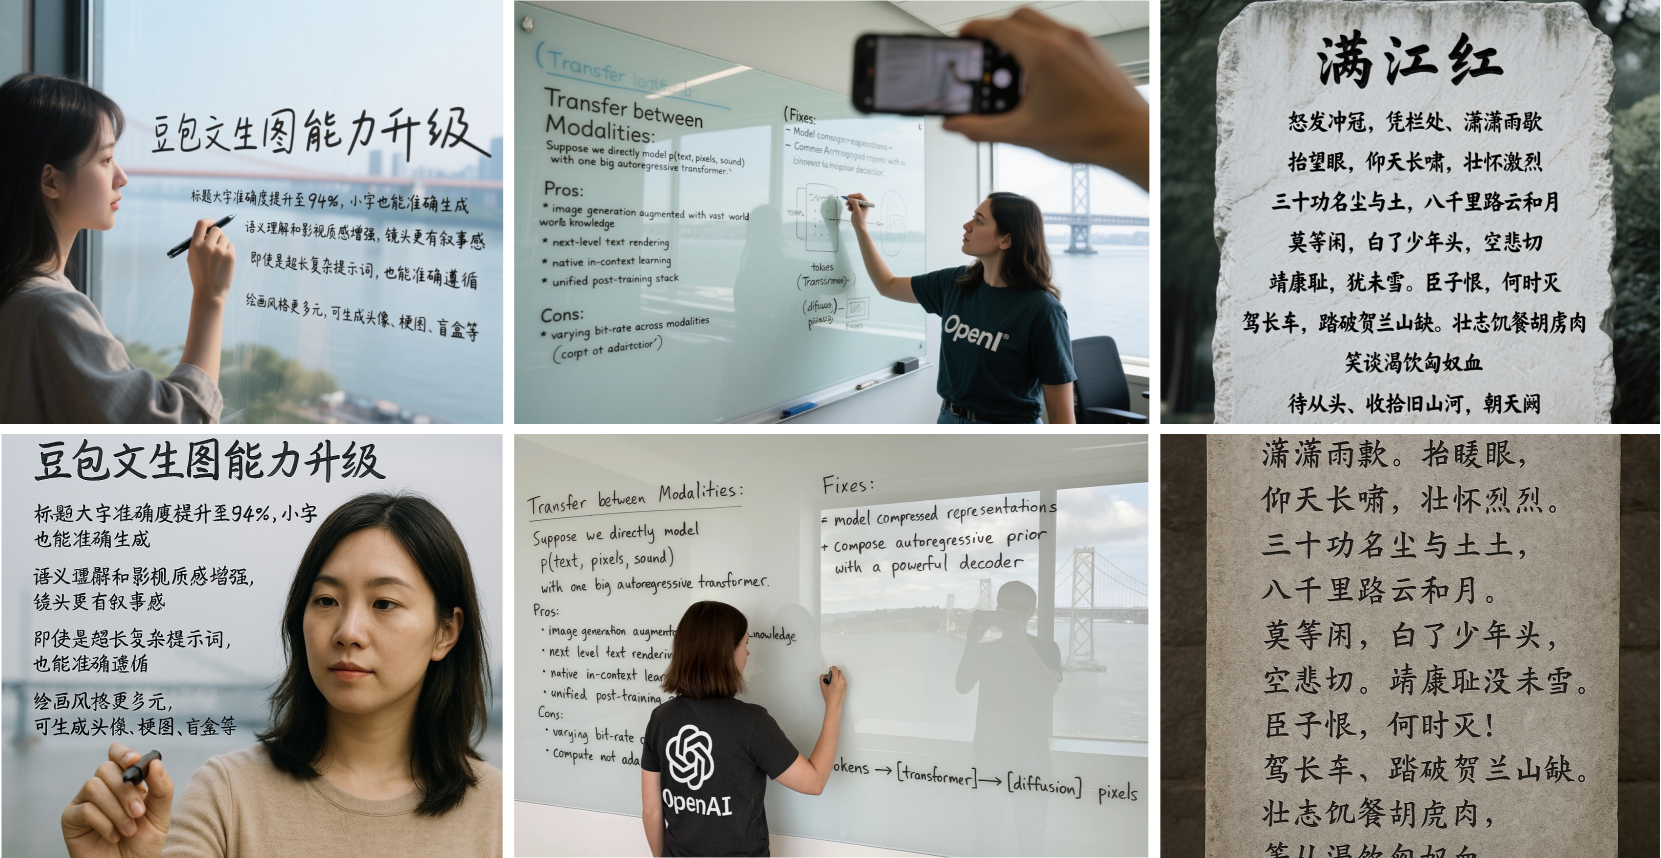 豆包文生图能力升级
标题大字准确度提升至94%, 小字也能准确生成
语义理解和影视质感增强, 镜头更有叙事感
即使是超长复杂提示词, 也能准确遵循
绘画风格更多元, 可生成头像、梗图、盲盒等
(Transfer
Transfer between
Modalities:
Suppose we directly model p(text, pixels, sound)
with one big autoregressive transformer.
Pros:
* image generation augmented with vast world
world knowledge
* next-level text rendering
* native in-context learning
* unified post-training stack
Cons:
* varying bit-rate across modalities
(corpt ot adartotior')
(Fixes:
- Model
- Commer
tokies
OpenI®
满江红
怒发冲冠，凭栏处、潇潇雨歇
抬望眼，仰天长啸，壮怀激烈
三十功名尘与土，八千里路云和月
莫等闲，白了少年头，空悲切
靖康耻，犹未雪。臣子恨，何时灭
驾长车，踏破贺兰山缺。壮志饥餐胡虏肉
笑谈渴饮匈奴血
待从头、收拾旧山河，朝天阙
豆包文生图能力升级
标题大字准确度提升至94%, 小字
也能准确生成
语义理解和影视质感增强,
镜头更有叙事感
即使是超长复杂提示词,
也能准确遵循
绘画风格更多元,
可生成头像、梗图、盲盒等
Transfer between Modalities:
Suppose we directly model
p(text, pixels, sound)
with one big autoregressive transformer.
Pros:
• image generation augmente nowledge
• next level text renderin
• native in-context lear
• unified post-training
Cons:
• varying bit-rate
• compute not ada
Fixes:
= model compressed representations
+ compose autoregressive prior
with a powerful decoder
okens → [transformer] → [diffusion] pixels
OpenAI
潇潇雨歎。抬睖眼，
仰天长啸，壮怀烈烈。
三十功名尘与土土，
八千里路云和月。
莫等闲，白了少年头，
空悲切。靖康耻没未雪。
臣子恨，何时灭！
驾长车、踏破贺兰山缺。
壮志饥餐胡虎肉，